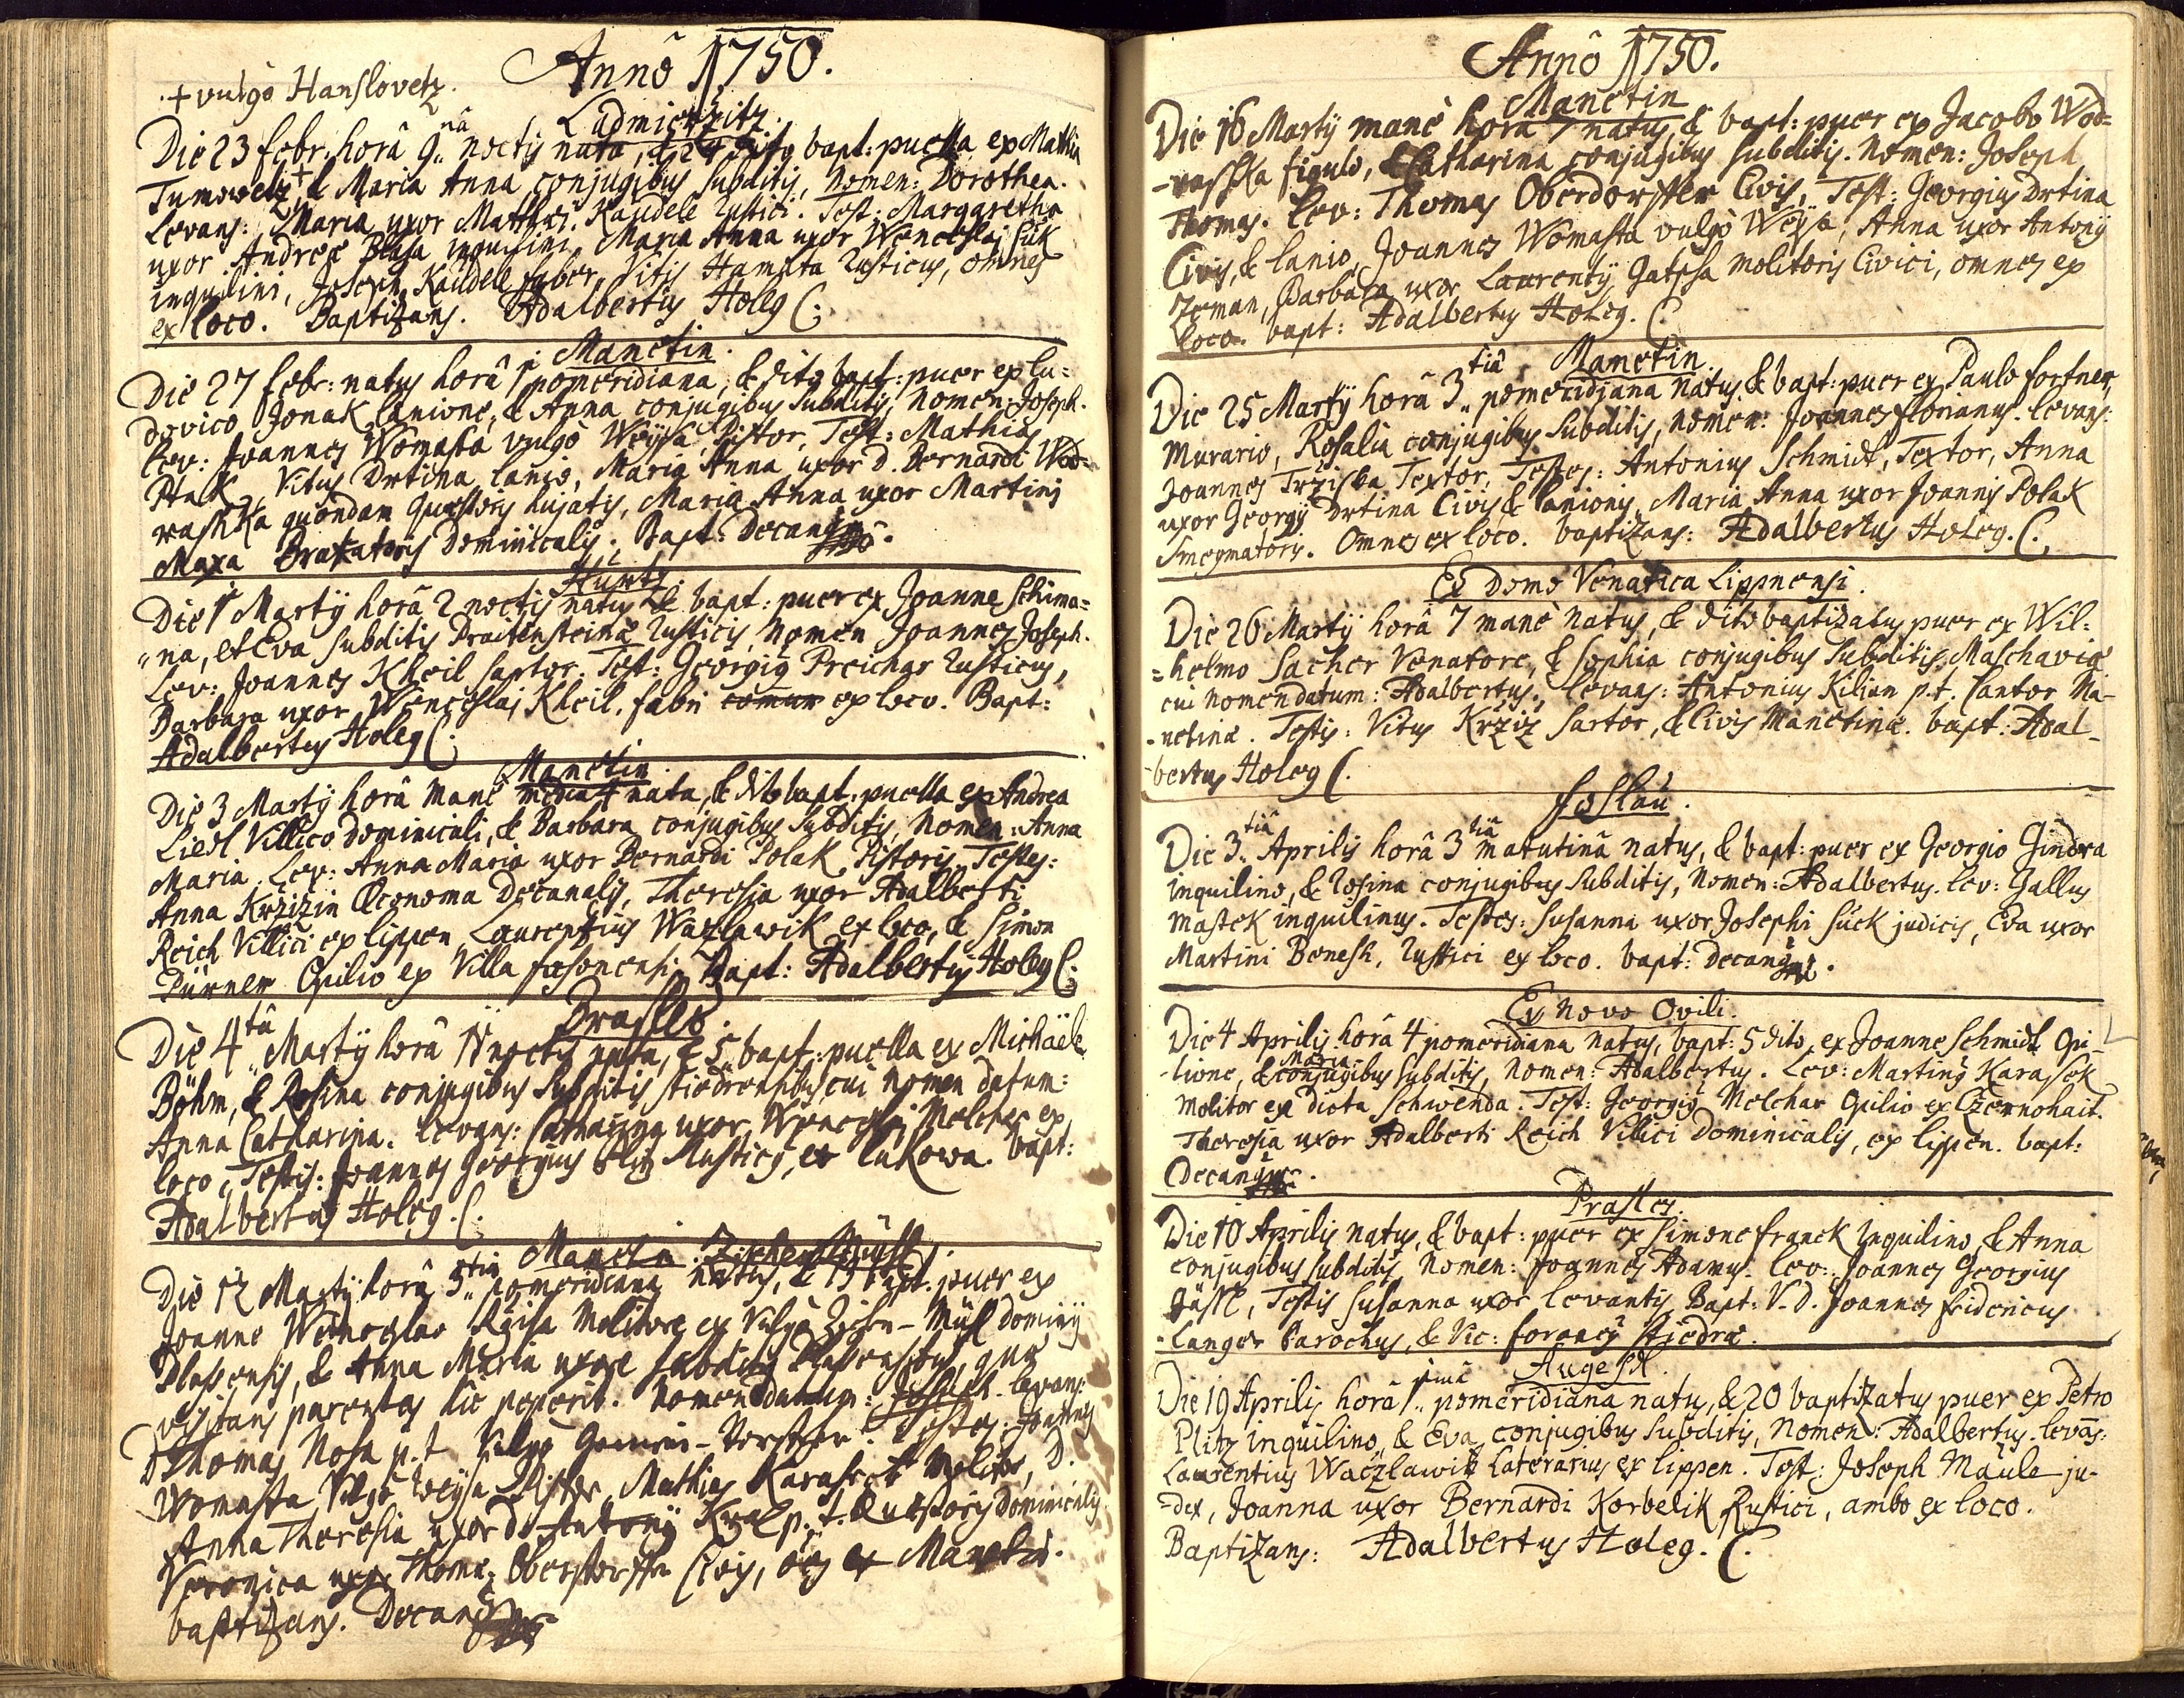 Annô 1750.
+ vulgò Hanslovetz.
Ludmierzitz.
Die 23 febr: horâ 9nâ noctis nata, & 24 dito bapt: puella ex Mathia
Tumowetz + & Maria Anna conjugibus subditis, Nomen: Dorothea.
Levans: Maria uxor Matthæi Kaudele Rustici. Test: Margaretha
uxor Andreæ Blaha inquilini, Maria Anna uxor Wenceslaj Suk
inquilini, Joseph Kaudele faber, Vitis Hamata Rusticus, omnes
ex loco. Baptizans. Adalbertus Holeg C:
Manetin.
Die 27 febr: natus horâ 1 pomeridiana, & dito bapt: puer ex Lu=
dovico Jonak lanione, & Anna conjugibus subditis, Nomen: Joseph.
Lev: Joannes Womasta vulgò Weysa, Pistor, Test: Mathias
Ptak, Vitus Drtina lanio, Maria Anna uxor D. Bernardi Wod=
rashka quondam Quæstoris hujatis, Maria Anna uxor Martini
Maxa Braxatoris Dominicalis. Bapt: Decanus
Hurtz.
Die 1 Martÿ horâ 2 noctis natus & bapt: puer ex Joanne Schima=
"na, et Eva subditis Praitensteinæ Rusticis, Nomen Joannes Joseph.
Lev: Joannes Kheil sartor, Test: Georgig Preichar Rusticus,
Barbara uxor Wenceslaj Kheil. fabri ex loco. Bapt:
Adalbertus Holeg C.
Manetin.
Die 3 Martÿ horâ manè media 4 nata, & dito bapt: puella ex Andrea
Liedl Villico Dominicali, & Barbara conjugibus subditis, Nomen: Anna
Maria. Lev: Anna Maria uxor Bernardi Polak Pistoris. Testes:
Anna Krzizin Œconoma Decanalis, Theresia uxor Adalberti
Reich Villici ex Lippen, Laurentius Wazlawik ex loco, & Simon
Pürner Opilio ex Villa fasonensi. Bapt: Adalbertus Holeg C:
Prasles.
Die 4tâ Martÿ horâ 11 noctis nata, & 5 bapt: puella ex Michaële
Böhm, & Rosina conjugibus subditis Stiedrensibus, cui Nomen datum:
Anna Catharina. Levans: Catharina uxor Wenceslai Melcher ex
loco, Testis: Joannes Georgius Rusticus, ex Lukowa. bapt:
Adalbertus Holeg. C.
Manetin.
Die 12 Martÿ horâ 3tia pomeridiana natus, & 13 bapt. puer ex
Joanne Wenceslao Molitore ex Vulgò Dominÿ
Plassensis, & Anna Maria uxore subditis Plassensibus, quæ
visitans parentes hic peperit. Nomen datum: Joseph. levans:
D Thomas Nosa p.t. Testes: Joannes
Womasta Vulgò Weysa Pistor, Mathias Karasek Molitor, D.
Anna Theresia uxor D. Antonÿ Kral p. t. Quæstoris dominicalis
Veronica uxor Thomæ Oberdorster Civis, ex Manetin.
baptizans. Decanus
Annô 1750.
Manetin
Die 16 Martÿ manè horâ 7 natus, & bapt: puer ex Jacobo Wod=
-rasska figulo, & Catharina conjugibus subditis. Nomen: Joseph
Thomas. Lev: Thomas Oberdorster Civis, Test: Georgius Drtina
Civis, & lanio, Joannes Womasta vulgò Weysa, Anna uxor Antonÿ
Zeman, Barbara uxor Laurentÿ Gatscha molitoris Civici, omnes ex
loco. bapt: Adalbertus Holeg. C.
Manetin.
Die 25 Martÿ horâ 3tiâ pomeridiana natus & bapt: puer ex Paulo fortner
Murario, Rosalia conjugibus subditis, nomen: Joannes florianus. levans:
Joannes Trziska Textor, Testes: Antonius Schmidt, Textor, Anna
uxor Georgÿ Drtina Civis, & lanionis, Maria Anna uxor Joannis Polak
Smegmatoris. Omnes ex loco. baptizans: Adalbertus Holeg. C.
Ex Domo Venatica Lippnensi.
Die 26 Martÿ horâ 7 manè natus, & dito baptizatus puer ex Wil=
=helmo Sacher Venatore, & Sophia conjugibus subditis, Maschavia
cui nomen datum: Adalbertus. levans: Antonius Kilian p.t. Cantor Ma-
-netinæ. Testis: Vitus Krziz Sartor, & Civis Manetinæ. bapt: Adal-
-bertus Holeg C.
Foslau.
Die 3tiâ Aprilis horâ 3tiâ matutinâ natus, & bapt: puer ex Georgio Gindra
inquilino, & Rosina conjugibus subditis, Nomen: Adalbertus. lev: Gallus
Mastek inquilinus. Testes: Susanna uxor Josephi Suck judicis, Eva uxor
Martini Benesh, Rustici ex loco. bapt: Decanus.
Ex Novo Ovili.
Die 4 Aprilis horâ 4 pomeridiana natus, bapt: 5 dito, ex Joanne Schmidt Opi-
-lione, & Maria conjugibus subditis, Nomen: Adalbertus. Lev: Martinus Karasek
Molitor ex dicta Schwenda. Test: Georgius Melchar Opilio ex Czernohait.
Theresia uxor Adalberti Reich Villici Dominicalis, ex Lippen. bapt:
Decanus.
Prasles.
Die 10 Aprilis natus, & bapt: puer ex Simone franck Inquilino, & Anna
conjugibus subditis, Nomen: Joannes Adamus. Lev: Joannes Georgius
Testis Susanna uxor levantis, Bapt: V. D. Joannes fridericus
-Langer Parochus, & Vic: foraneus Stiedræ.
Augezd.
Die 19 Aprilis horâ 1mâ pomeridiana natus, & 20 baptizatus puer ex Petro
Plitz inquilino, & Eva conjugibus subditis, Nomen: Adalbertus. levãs:
Laurentius Waczlawik Laterarius ex Lippen. Test: Joseph Maule ju-
=dex, Joanna uxor Bernardi Korbelik Rustici, ambo ex loco.
Baptizans: Adalbertus Holeg. C.